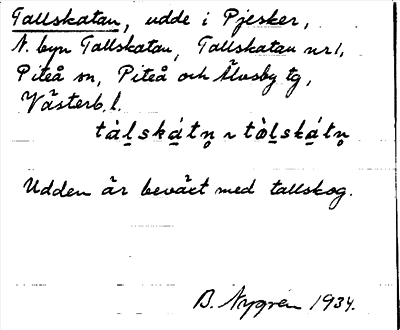 Tallskatan, udde i Pjesker,
N. byn Tallskatan, Tallskatan nr 1,
Piteå sn, Piteå och Älvsby tg,
Västerb. l.
tàl̠skát̠n̥ ~ tòl̠skát̠n̥
Udden är beväxt med tallskog.
B. Nygren 1934.